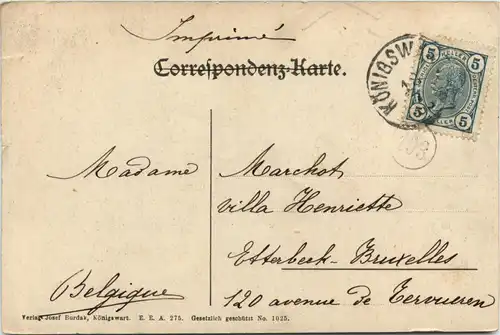 Imprimé
Correspondenz-Karte.
KÖNIGSW
5 HELLER 5
5 5
Madame Marchot
villa Henriette
Etterbeek-Bruxelles
Belgique 120 avenue de Tervueren
Verlag Josef Burdak, Königswart. E. E. A. 275. Gesetzlich geschützt No. 1025.